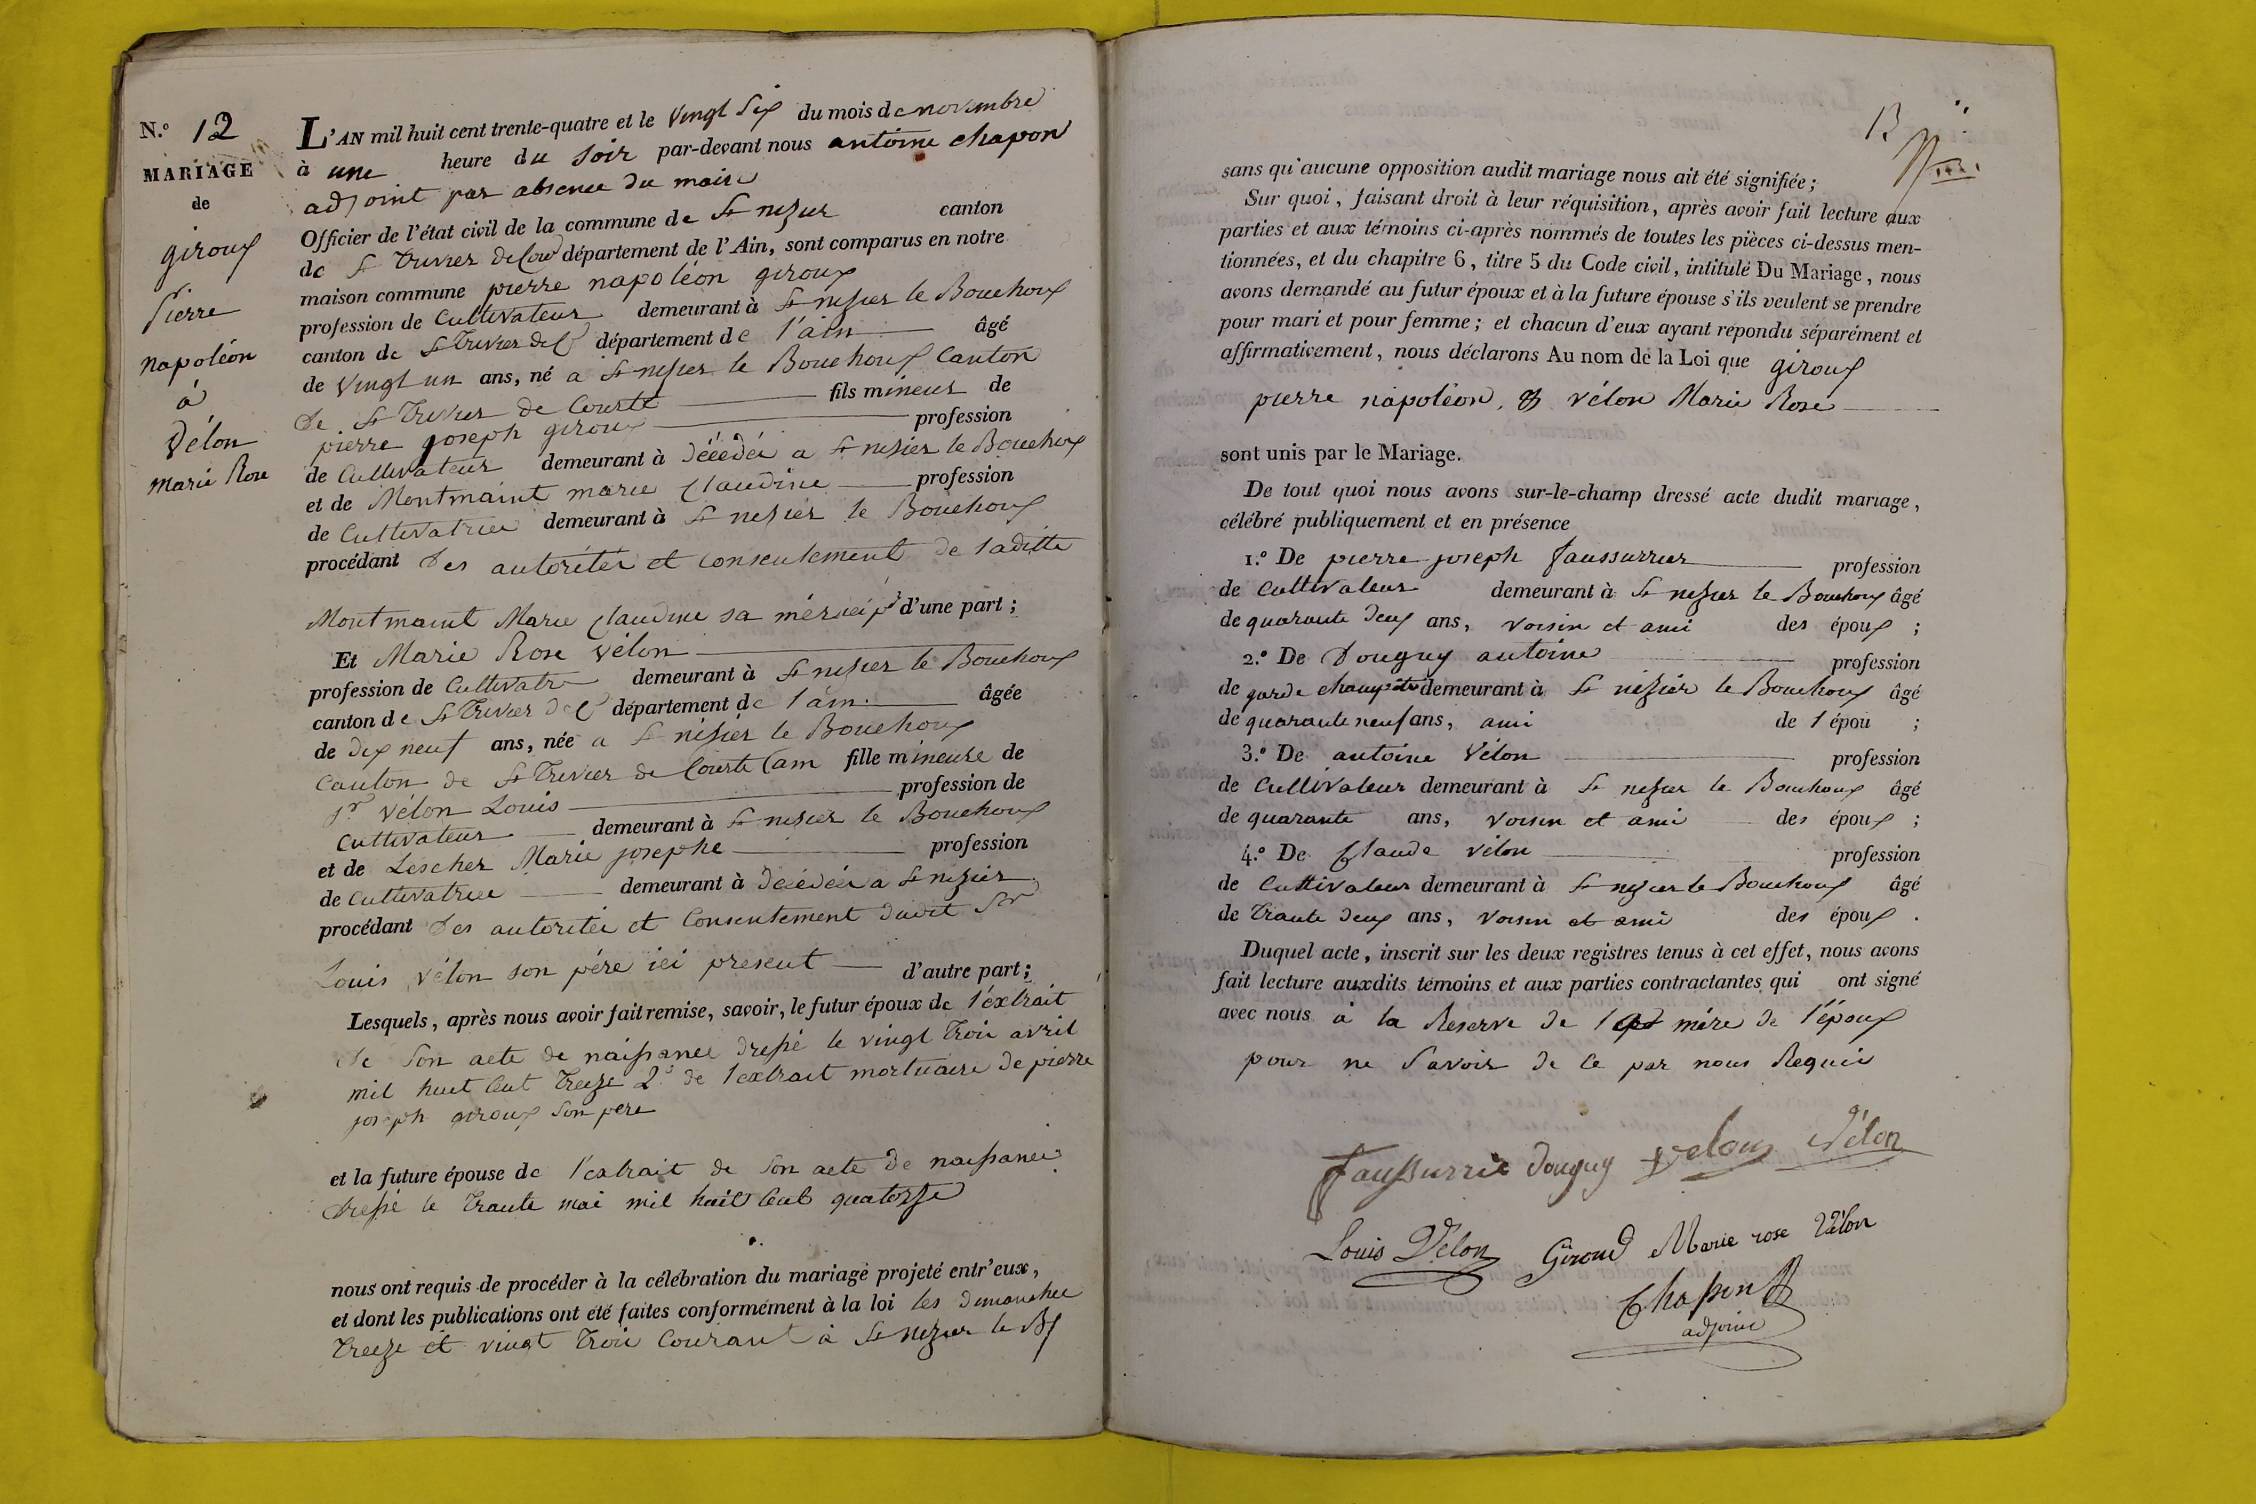 N.º 12
MARIAGE
de
giroux
Pierre
napoléon
à
Vélon
marie Rose
L'AN mil huit cent trente-quatre et le vingt six du mois de novembre
à une heure du soir par-devant nous antoine chapon
adjoint par absence du maire
Officier de l'état civil de la commune de St nizier canton
de St Trivier de Cour département de l'Ain, sont comparus en notre
maison commune pierre napoléon giroux
profession de Cultivateur demeurant à St nizier le Bouchoux
canton de St Trivier de C département de l'ain âgé
de vingt un ans, né a St nizier le Bouchoux Canton
de St Trivier de Courte fils mineur de
pierre joseph giroux profession
de Cultivateur demeurant à décédé a St nizier le Bouchoux
et de Montmaint marie Claudine profession
de Cultivatrice demeurant à St nizier le Bouchoux
procédant des autorité et consentement de laditte
Montmaint Marie Claudine sa mére ici pt d'une part ;
Et Marie Rose vélon
profession de Cultivatr demeurant à St nizier le Bouchoux
canton de St Trivier de C département de l'ain âgée
de dix neuf ans, née a St nizier le Bouchoux
Canton de St Trivier de Courte Cam fille mineure de
Sr vélon Louis profession de
Cultivateur demeurant à St nizier le Bouchoux
et de Lescher Marie josephe profession
de Cultivatrice demeurant à décédée a St nizier
procédant des autorité et Consentement dudit Sr
Louis vélon son pére ici present d'autre part ;
Lesquels, après nous avoir fait remise, savoir, le futur époux de l'éxtrait
de son acte de naissance dressé le vingt Trois avril
mil huit Cent Treize 2º de l'extrait mortuaire de pierre
joseph giroux son pere
et la future épouse de l'extrait de son acte de naissance
dressé le Trante mai mil huit Cent quatorze
nous ont requis de procéder à la célébration du mariage projeté entr'eux,
et dont les publications ont été faites conformément à la loi les dimanche
Treize et vingt Trois Courant à St nizier le Bx
13
sans qu'aucune opposition audit mariage nous ait été signifiée ;
Sur quoi, faisant droit à leur réquisition, après avoir fait lecture aux
parties et aux témoins ci-après nommés de toutes les pièces ci-dessus men-
tionnées, et du chapitre 6, titre 5 du Code civil, intitulé Du Mariage, nous
avons demandé au futur époux et à la future épouse s'ils veulent se prendre
pour mari et pour femme ; et chacun d'eux ayant répondu séparément et
affirmativement, nous déclarons Au nom de la Loi que giroux
pierre napoléon, & vélon Marie Rose
sont unis par le Mariage.
De tout quoi nous avons sur-le-champ dressé acte dudit mariage,
célébré publiquement et en présence
1.º De pierre joseph faussurrier profession
de Cultivateur demeurant à St nizier le Bouchoux âgé
de quarante deux ans, voisin et ami des époux ;
2.º De Douguy antoine profession
de garde champetre demeurant à St nizier le Bouchoux âgé
de quarante neuf ans, ami de l épou ;
3.º De antoine Vélon profession
de Cultivateur demeurant à St nizier le Bouchoux âgé
de quarante ans, voisin et ami des époux ;
4.º De Claude vélon profession
de Cultivateur demeurant à St nizier le Bouchoux âgé
de Trante deux ans, voisin et ami des époux .
Duquel acte, inscrit sur les deux registres tenus à cet effet, nous avons
fait lecture auxdits témoins et aux parties contractantes qui ont signé
avec nous à la Reserve de la mére de l'époux
pour ne savoir de ce par nous Requis
faussurrie douguy velon Vélon
Louis Vélon Giroud Marie rose Vélon
Chapon
adjoint